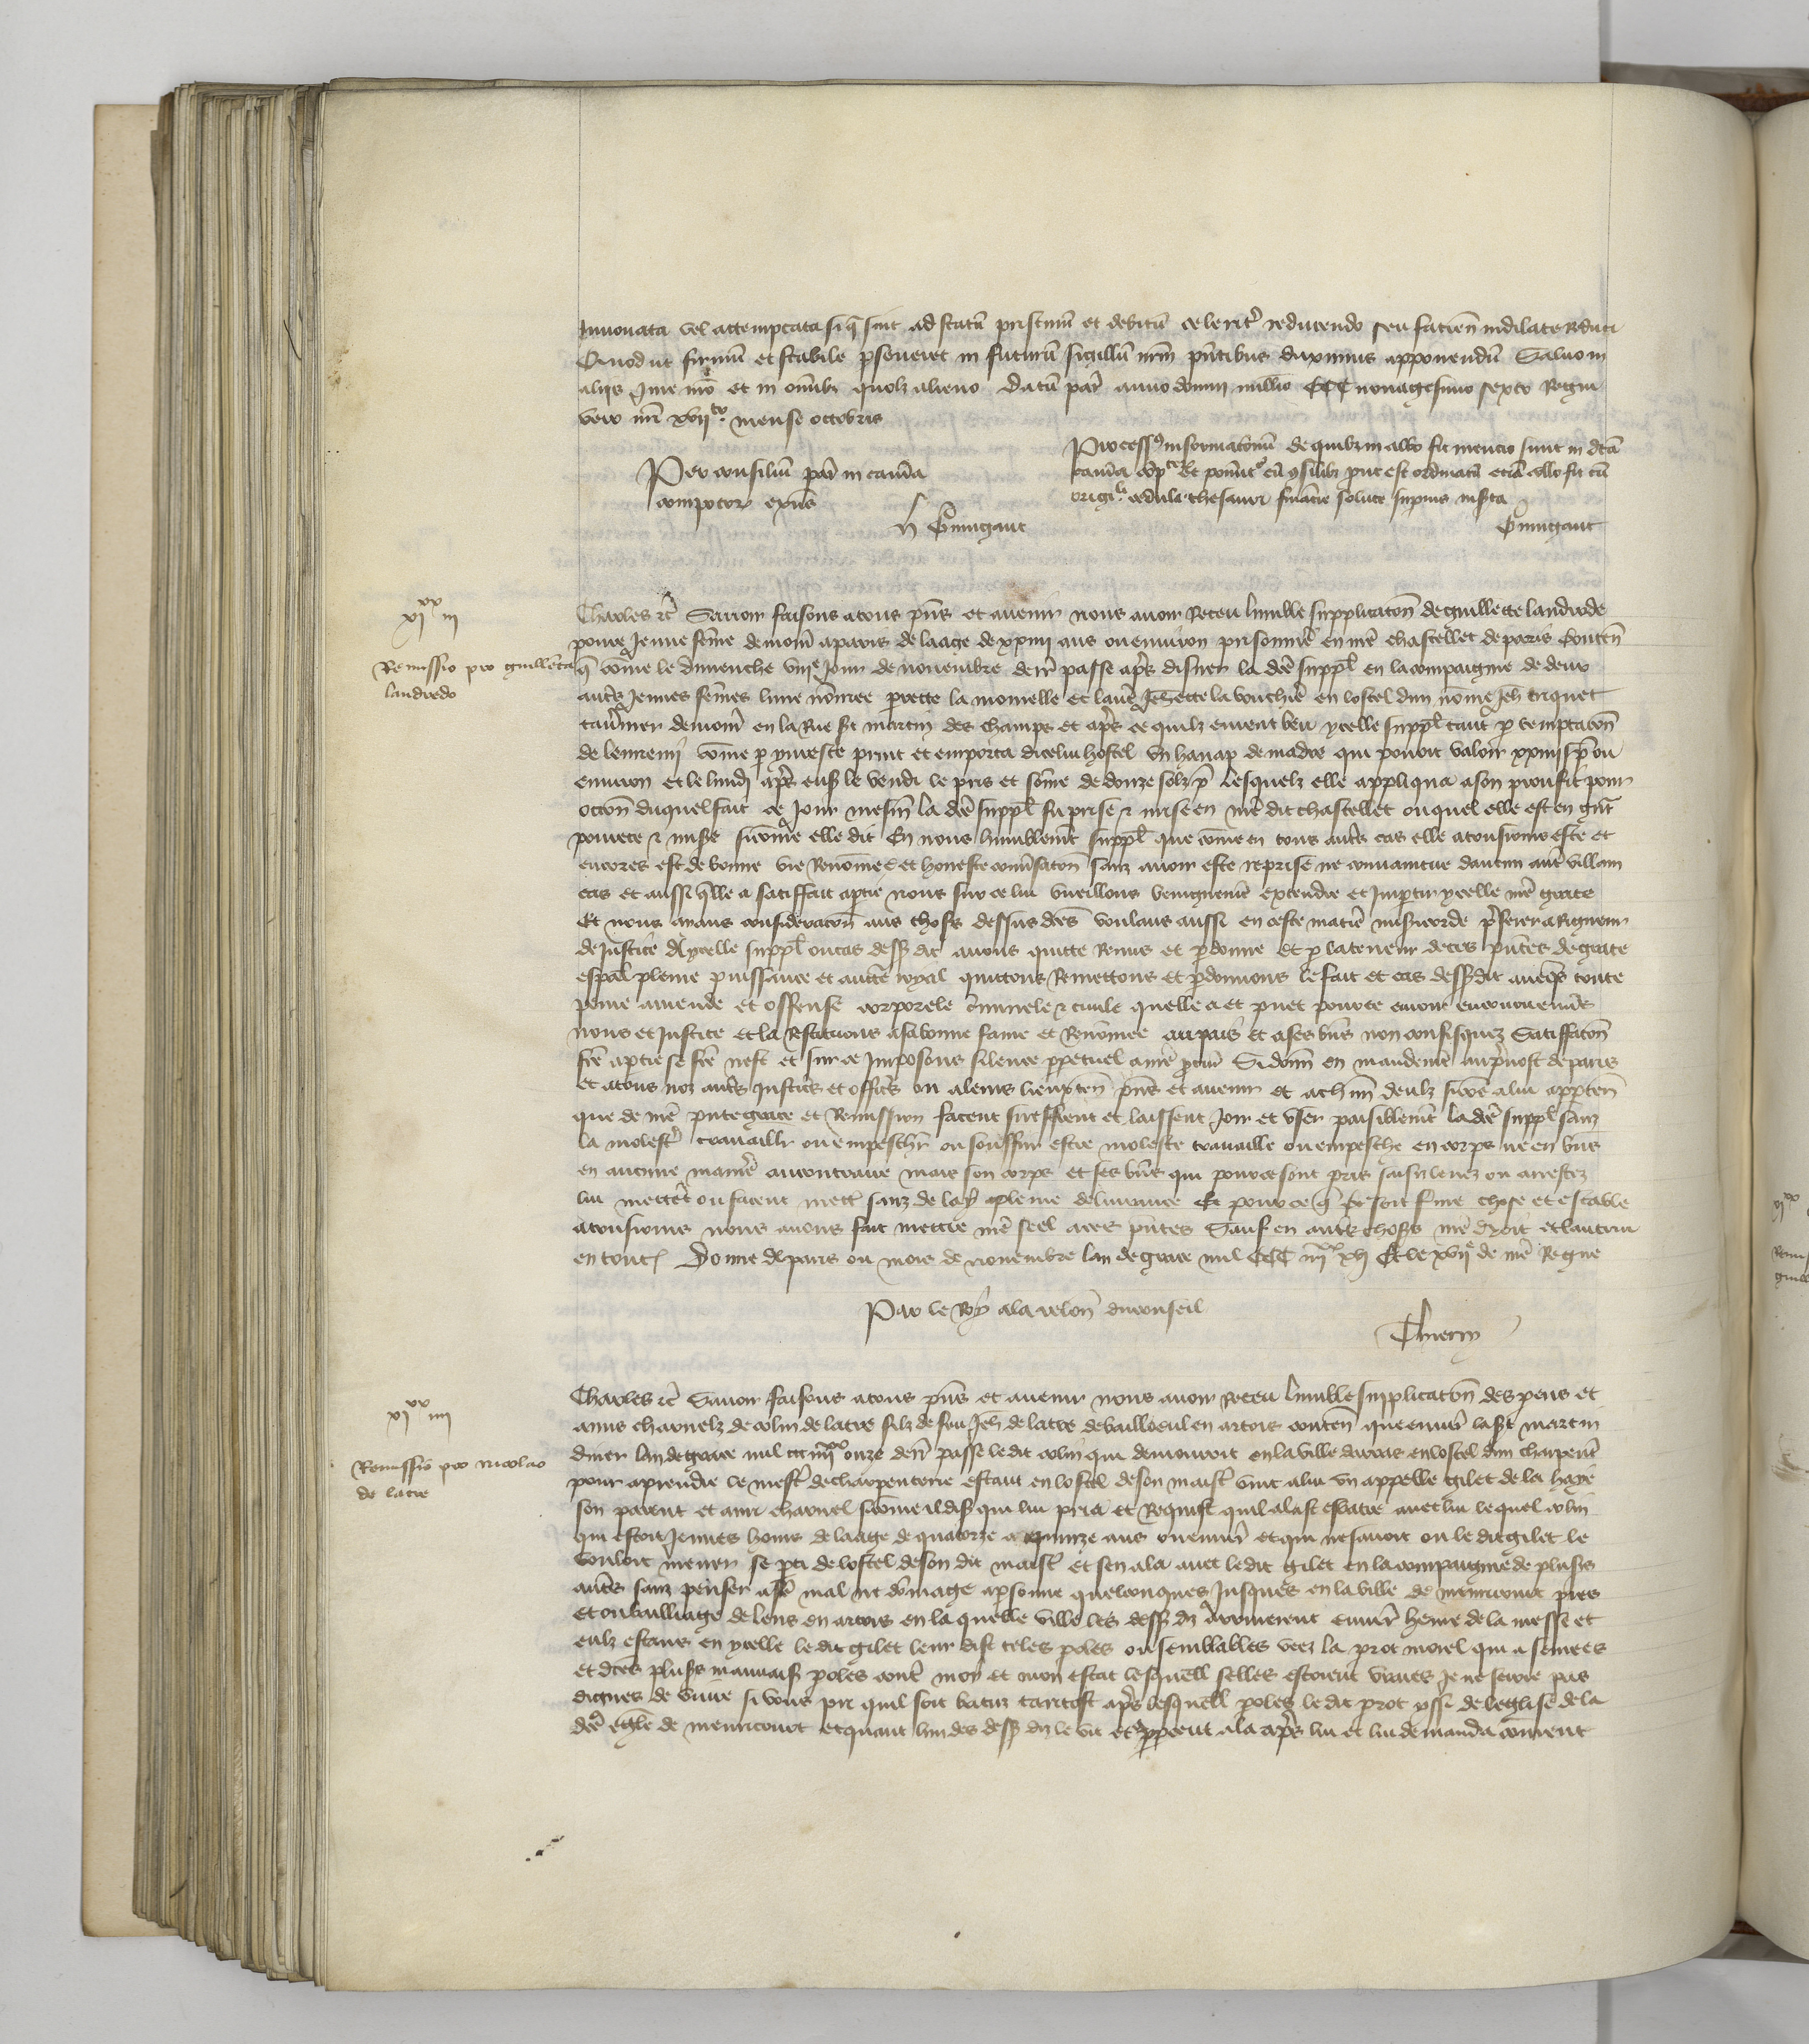 Innovata vel attemptata si q̃ sint ad statũ pristinũ et debitũ celerit̃ reducendo seu faciẽn indilate Reduci
Quod ut firmũ et stabile p̃severet in futurũ sigillũ nr̃m pñtibus duximus apponendũ Salvo in
aliis Jure nr̃o et in omĩbȝ quolȝ alieno Datũ par̃ anno domini millĩo CCC nonagesimo sexto Regni
vero nr̃i xvii^to mense octobris
Per consiliũ par̃ in cam̃a
compotorȝ exñs
h Guingant
Process9 informationũ de quibȝ in albo fit mencio sunt in dc̃a
cam̃a
origi^li cedula thesaur̃ financie solute suprius inserta
Guingant
xi^xx iii
Remissio pro guilleta
landredo
Charles ec̃ Savoir faisons a tous p̃ns et avenir nous avoir Receu lumble supplicatõn de guillecte landrede
povre Jenne fẽme demour̃ a paris de laage de xxiiii ans ou environ prisonnier̃ en nr̃e chastellet de paris Contẽn
q̃ cõme le dimenche viii^e Jour de novembre der̃r passe apr̃s disner la dc̃e suppl̃ en la compaignie de deux
autr̃s Jennes fẽmes lune nõmee perrette la monnelle et laut̃ Jehãnette la bouchier̃ en lostel dun nõme Jeh̃ tiquet
tav̾nier demour̃ en la Rue st̃ martin des champs et apr̃s ce quilz eurent beu ycelle suppl̃ tant p temptatõn
de lennemi cõme p yvresse print et emporta dicelui hostel un hanap de madre qui povoit valoir xxiiii s̃ p̃ ou
environ et le lundi apr̃s ens̾ le vendi le pris et sõme de douze solz p̃ lesquelz elle appliqua a son proufit pour
occõn duquel fait ce Jour mesm̃ la dc̃e suppl̃ fu prise et mise en nr̃e dit chastellet ouquel elle est en grãt
povrete et mis̾e sicõme elle dit En nous humblemẽt suppl̃ que cõme en tous autr̃s cas elle a tousiours este et
encores est de bonne vie Renõmee et honneste conv̾satõn sanz avoir este reprise ne convaincue daucun aut̃ villain
cas et aussi q̃lle a satiffait a ptie nous sur ce lui vueillons benignemẽt extendre et Impartir ycelle nr̃e grace
Et nous aians consideratõn aus choses dessus dc̃es voulans aussi en ceste matier̃ mis̾icorde p̃ferer a Rigueur
de Justice A ycelle suppl̃ ou cas dess̾ dit avons quitte Remis et pardonne et p la teneur de ces p̃ntes de grace
esp̃al pleine puissance et auct̃e royal quittons Remettons et pdonnons le fait et cas dess̾ dit avecq̃s toute
peine amende et offense corporele criminele et civile quelle a et puet pour ce avoir encouru env̾s
nous et Justice et la Restituons a sa bonne fame et Renõmee au pais et a ses biẽs non confisquez Satiffatõn
fc̃e a ptie se fc̃e nest et sur ce Imposons silence ppetuel a nr̃e pcur̃ Si donñ en mandemẽt au p̃vost de paris
et a tous noz autr̃s Justic̾s et offic̾s ou a leurs lieuxtẽn p̃ns et avenir et a ch̃cun deulz sicõe a lui apptẽn
que de nr̃e p̃nte grace et Remission facent sueffrent et laissent Joir et user paisiblemẽt la dc̃e suppl̃ sanz
la molest̃ travaillr̃ ou empeschr̃ ou souffrir estre molestee travaille ou empesche en corps ne en biẽs
en aucune manier̃ au contraire mais son corps et ses biẽs qui pour ce sont pris saisiz levez ou arrestez
lui mettẽt ou facent mett̃ sanz delay a pleine delivrance Et pour ce q̃ ce soit ferme chose et estable
a tousiours nous avons fait mettre nr̃e seel a ces p̃ntes Sauf en autr̃s choses nr̃e droit et lautrui
en toutes Donne A paris ou mois de novembre lan de grace mil CCC iiii^xx xvi Et le xvii^e de nr̃e Regne
Par le Roy a la relõn du conseil
Thierry
xi^xx iiii
Remissio pro nicolao
de latre
Charles ec̃ Savoir faisons a tous p̃ns et avenir nous avoir Receu lumble supplicatõn des pens et
amis charnelz de colin de latre filz de feu Jeh̃ de latre de bailloeul en artois contẽn que envir̃ la st̃ martin
diver lan de grace mil ccc iiii^xx onze der̃r passe ledit colin qui demouroit en la ville darras en lostel dun charpent̃
pour aprendre le mest̃ de charpenterie estant en lostel de son maist̃ vint a lui un appelle gilet de la haye
son parent et ami charnel sicõme il dis̾ qui lui pria et Requist quil alast esbatre avec lui lequel colin
qui estoit Jennes homs de laage de quatorze a quinze ans ou envir̃ et qui ne savoit ou le dit gilet le
vouloit mener se pti de lostel de son dit maist̃ et sen ala avec ledit gilet en la compaignie de plus̾s
autr̃s sanz penser a fc̃e mal ne dõmage a psonne quelconques Jusques en la ville de mericourt pres
et ou bailliage de lens en artois en la quelle ville les dess̾ diz arriverent envir̃ heure de la messe et
eulz estans en ycelle ledit gilet leur dist teles poles ou semblables veez la prot morel qui a semees
et dc̃es plus̾s mauvais̾ poles cont̃ moy et mon estat lesquell̾ selles estoient vraies Je ne seroie pas
dignes de vivre si vous pri quil soit batuz tantost apr̃s lesquell̾ poles ledit prot yssi de leglise de la
dc̃e egl̃e de mericourt et quant lun des dess̾ diz le vit et apperceut ala apr̃s lui et lui demanda cõment